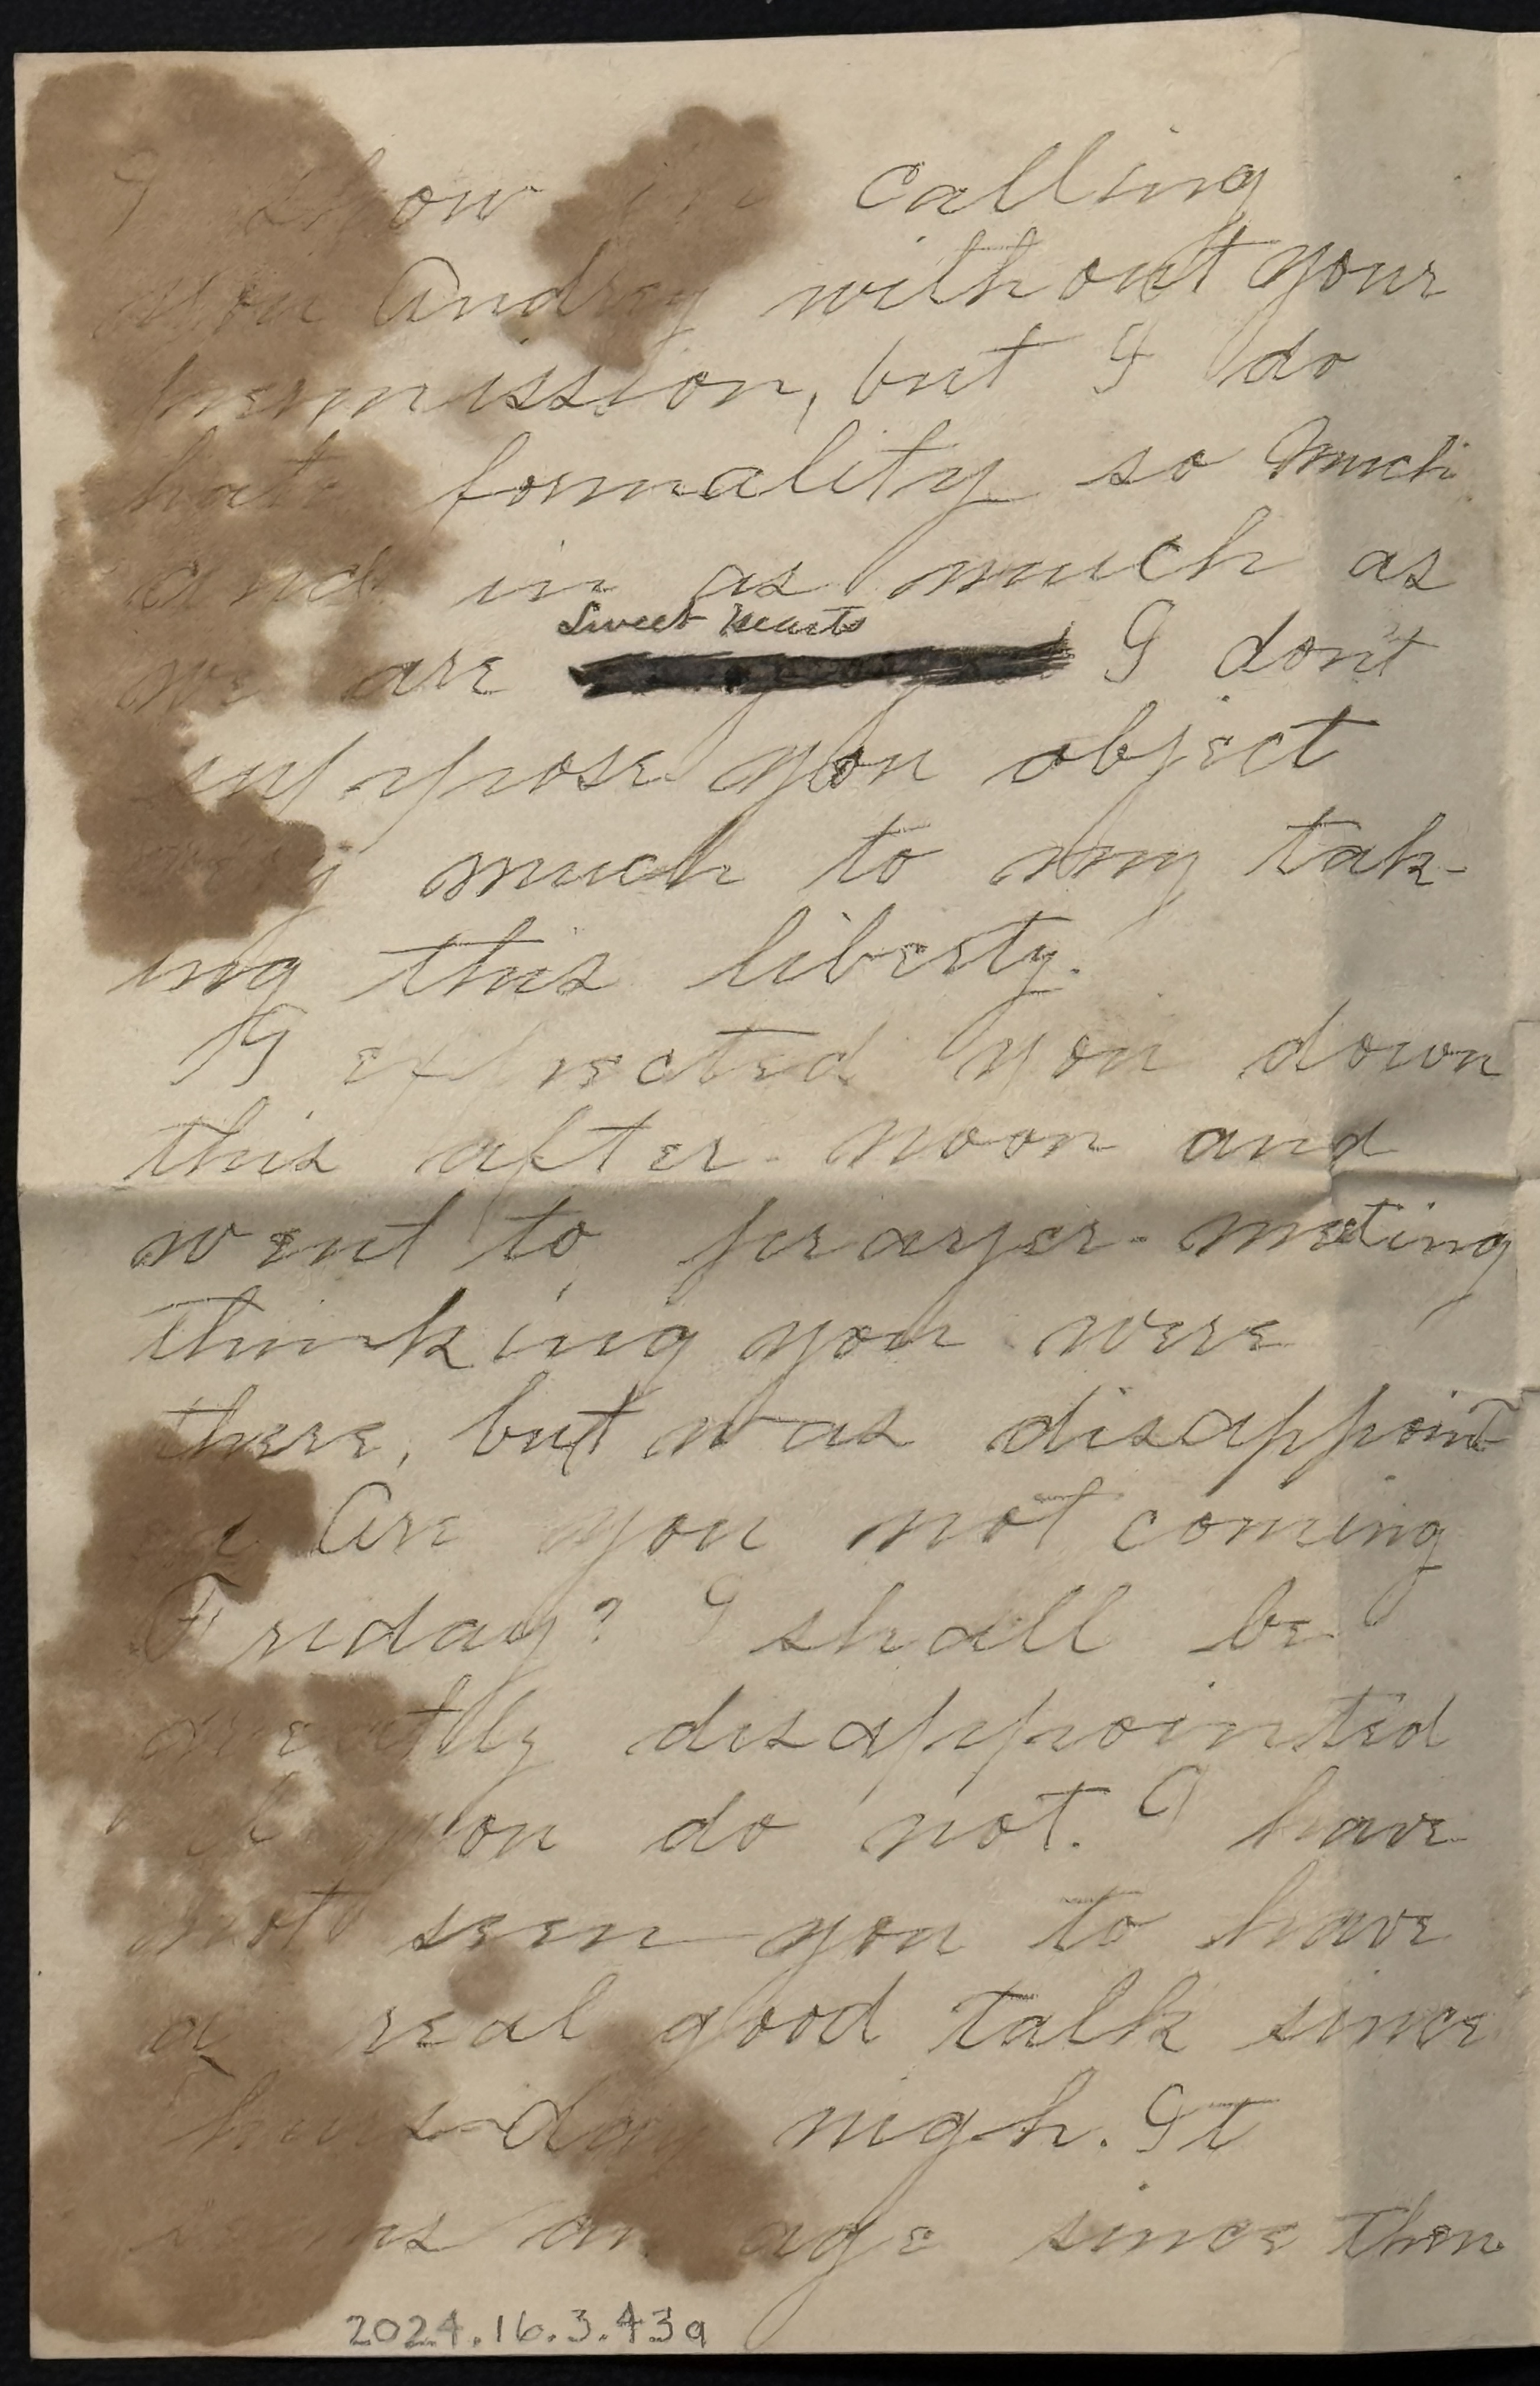 I know calling
you Audrey without your
permission, but I do
hate formality so much
and in as much as
Sweet Hearts
we are I don't
suppose you object
very much to my tak-
ing this liberty.
I expected you down
this after-noon and
went to prayer-meeting
thinking you were
there, but was disappoint
ed Are you not coming
Friday? I shall be
greatly disappointed
if you do not. I have
not seen you to have
a real good talk since
Thursday nigh. It
seems an age since then
2024.16.3.43a